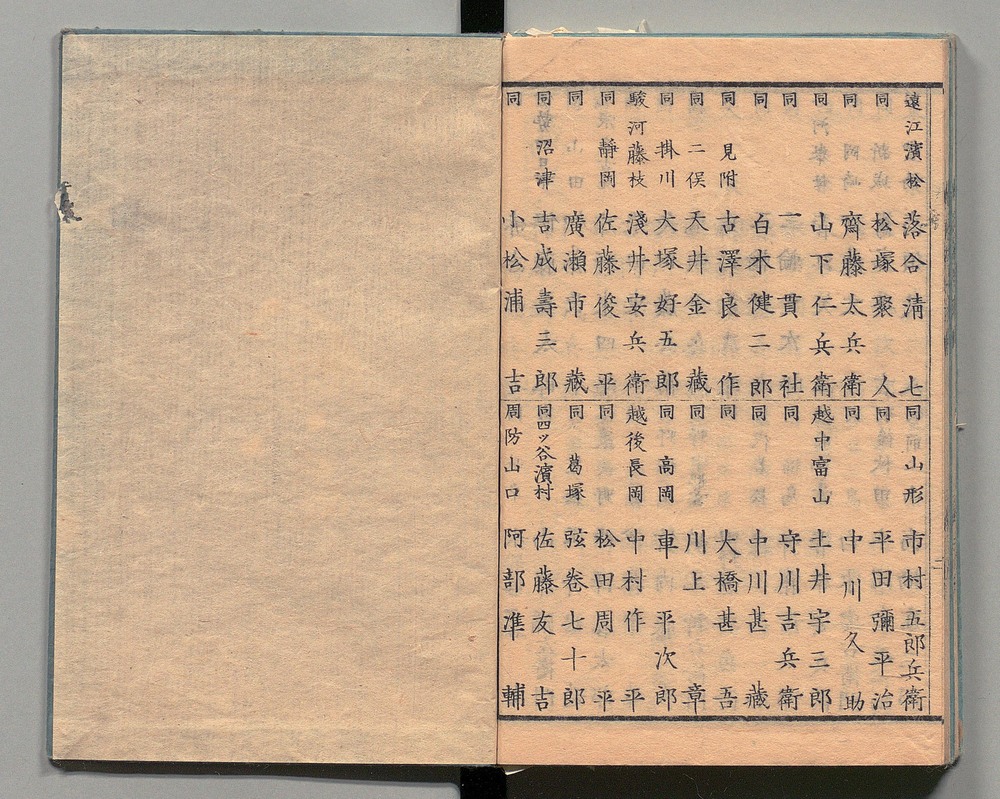 遠江濱松 落合清七
同 松塚聚人
同 齋藤太兵衛
同 山下仁兵衛
同 三輪貫衣社
同 白木健二郎
同 見附 古澤良作
同 二俣 天井金藏
同 掛川 大塚好五郎
駿河藤枝 淺井安兵衛
同 靜岡 佐藤俊四平
同 廣瀬市藏
同 沼津 吉成壽三郎
同 小松浦吉
同 山形 市村五郎兵衛
同 平田彌平治
同 中川久助
越中富山 土井宇三郎
同 守川吉兵衛
同 中川甚藏
同 大橋甚吾
同 川上章
同 高岡 車平次郎
越後長岡 中村作平
同 松田周平
同 葛塚 弦卷七十郎
同四ッ谷濱村 佐藤友吉
周防山口 阿部準輔